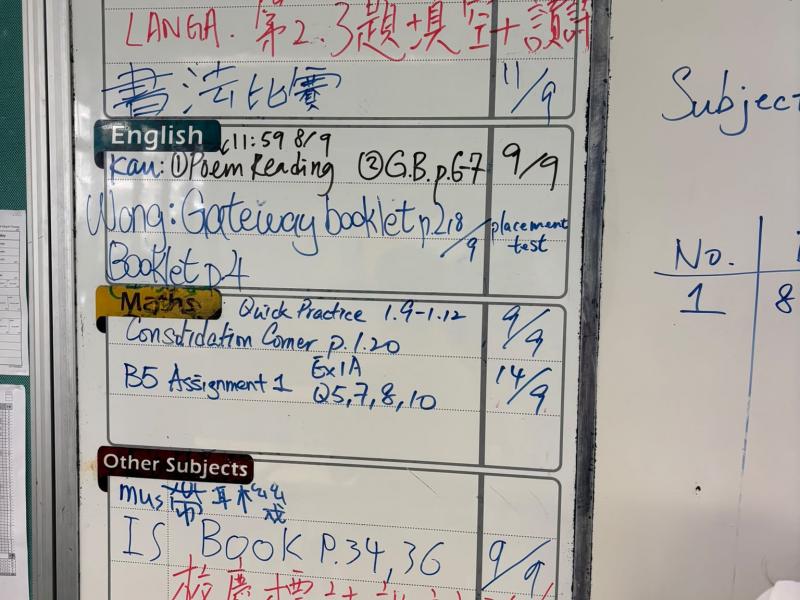 LANGA. 第2.3題填空+讀
書法比賽 11/9
English
11:59 8/9
Kan: ①Poem Reading ②G.B. p.67 9/9
Wong: Gateway booklet p.2 8/9 placement test
Booklet p4
Maths
Quick Practice 1.9-1.12 9/9
Consolidation Corner p.1.20
B5 Assignment 1 Ex1A Q5,7,8,10 14/9
Other Subjects
IS BOOK P.34,36 9/9
Subject
No.
1 8